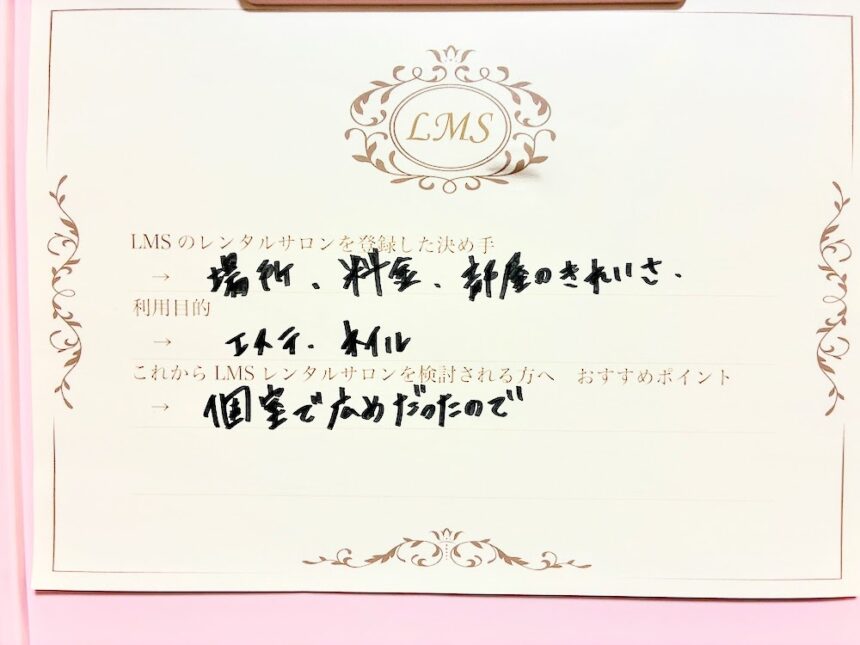 LMS
LMSのレンタルサロンを登録した決め手
→ 場所、料金、部屋のきれいさ.
利用目的
→ エステ. ネイル
これからLMSレンタルサロンを検討される方へ おすすめポイント
→ 個室で広めだったので